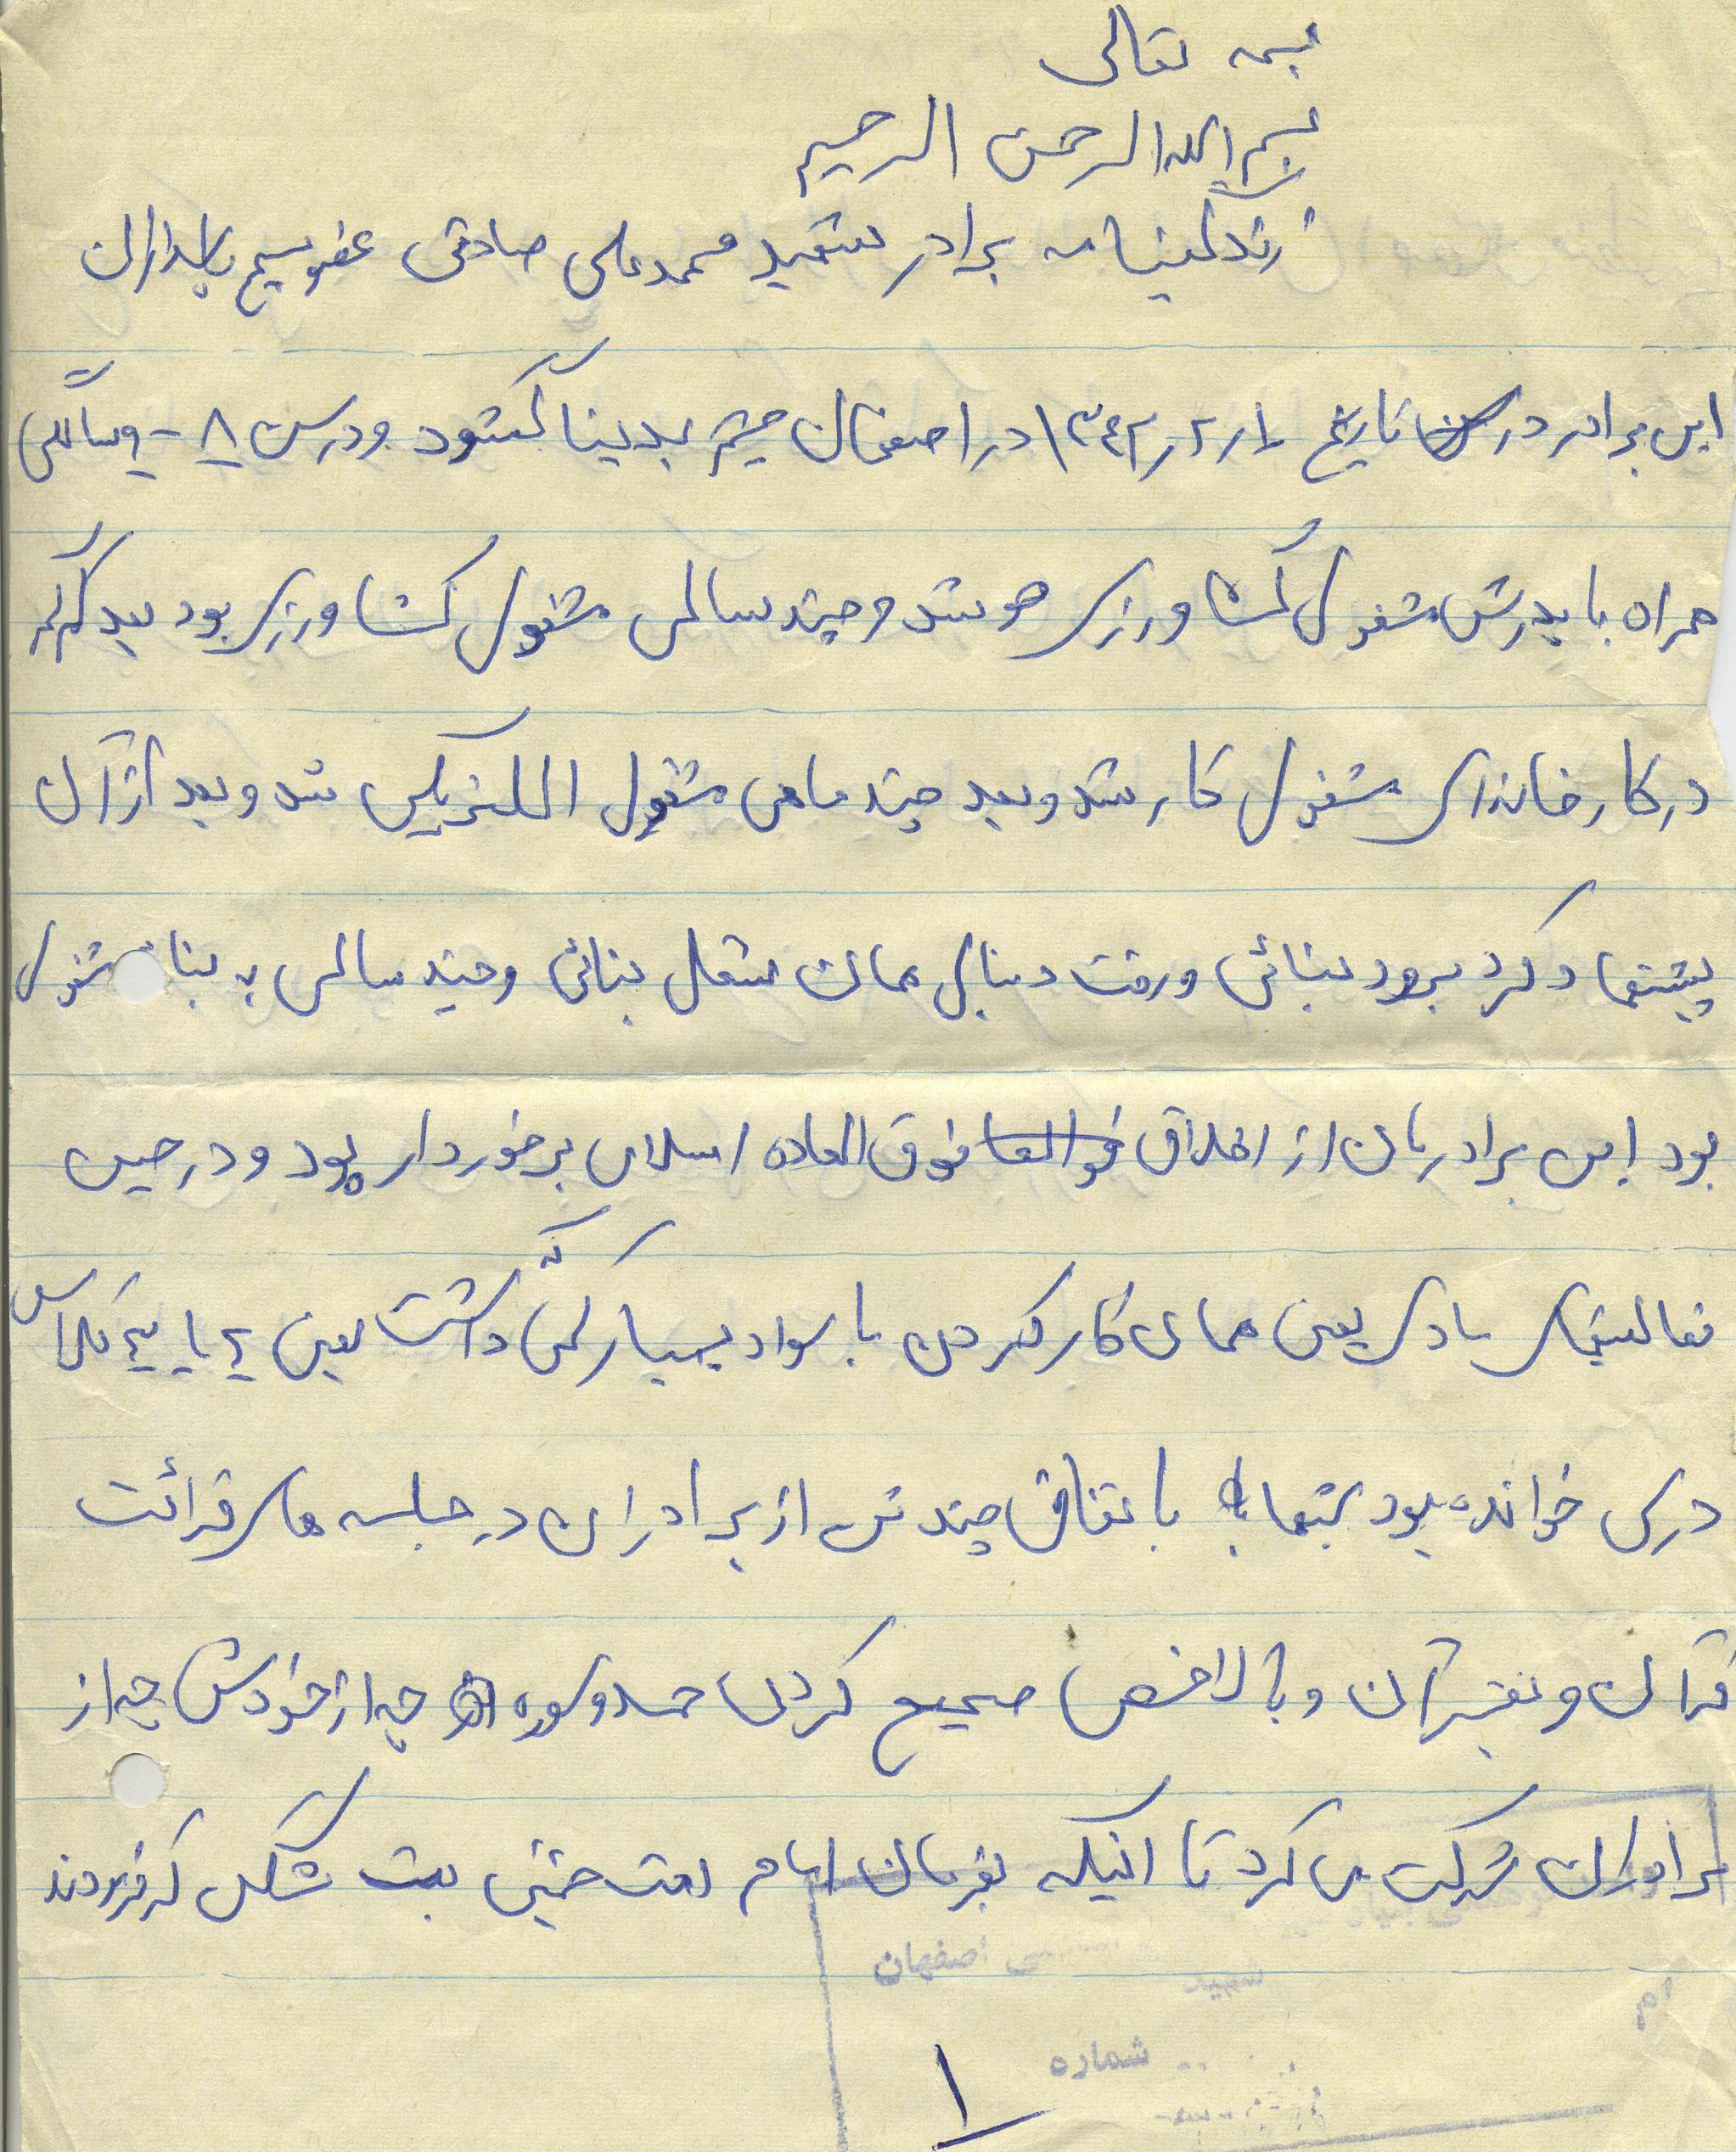 بسمه تعالی
بسم الله الرحمن الرحیم
زندگینامه برادر شهید محمد علی صادقی عضو بسیج پاسداران
این برادر در تاریخ ۱ر۲ر۱۳۴۲ در اصفهان چشم بدینا گشود و در سن ۸ - سالگی
همراه با پدرش مشغول کشاورزی شد و چند سالی مشغول کشاورزی بود بعد که
در کارخانه‌ای مشغول کار شد و بعد چند ماهی مشغول الکتریکی شد و بعد از آن
پیشنهاد کرد برود بنائی و رفت دنبال همان شغل بنائی و چند سالی به بنا مشغول
بود این برادرمان از اخلاق فوق العاده اسلامی برخوردار بود و در حین
فعالیتهای مادی یعنی همای کار کردن با سواد بسیار کمی که داشت یعنی ۴ یا پنج کلاس
درس خوانده بود با تفاق چند تن از برادران در جلسه های قرائت
قرآن و تفسیر قرآن و بالاخص صحیح کردن حمد و سوره چه از خودش چه از
برادران شرکت می کرد تا اینکه بفرمان امام امت خمینی بت شکن که فرمودند
اصفهان
شهید
شماره
۱